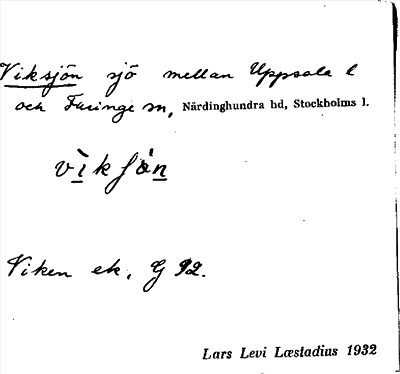 Viksjön sjö mellan Uppsala l
och Faringe sn, Närdinghundra hd, Stockholms l.
Viken ek. G 92.
Lars Levi Læstadius 1932